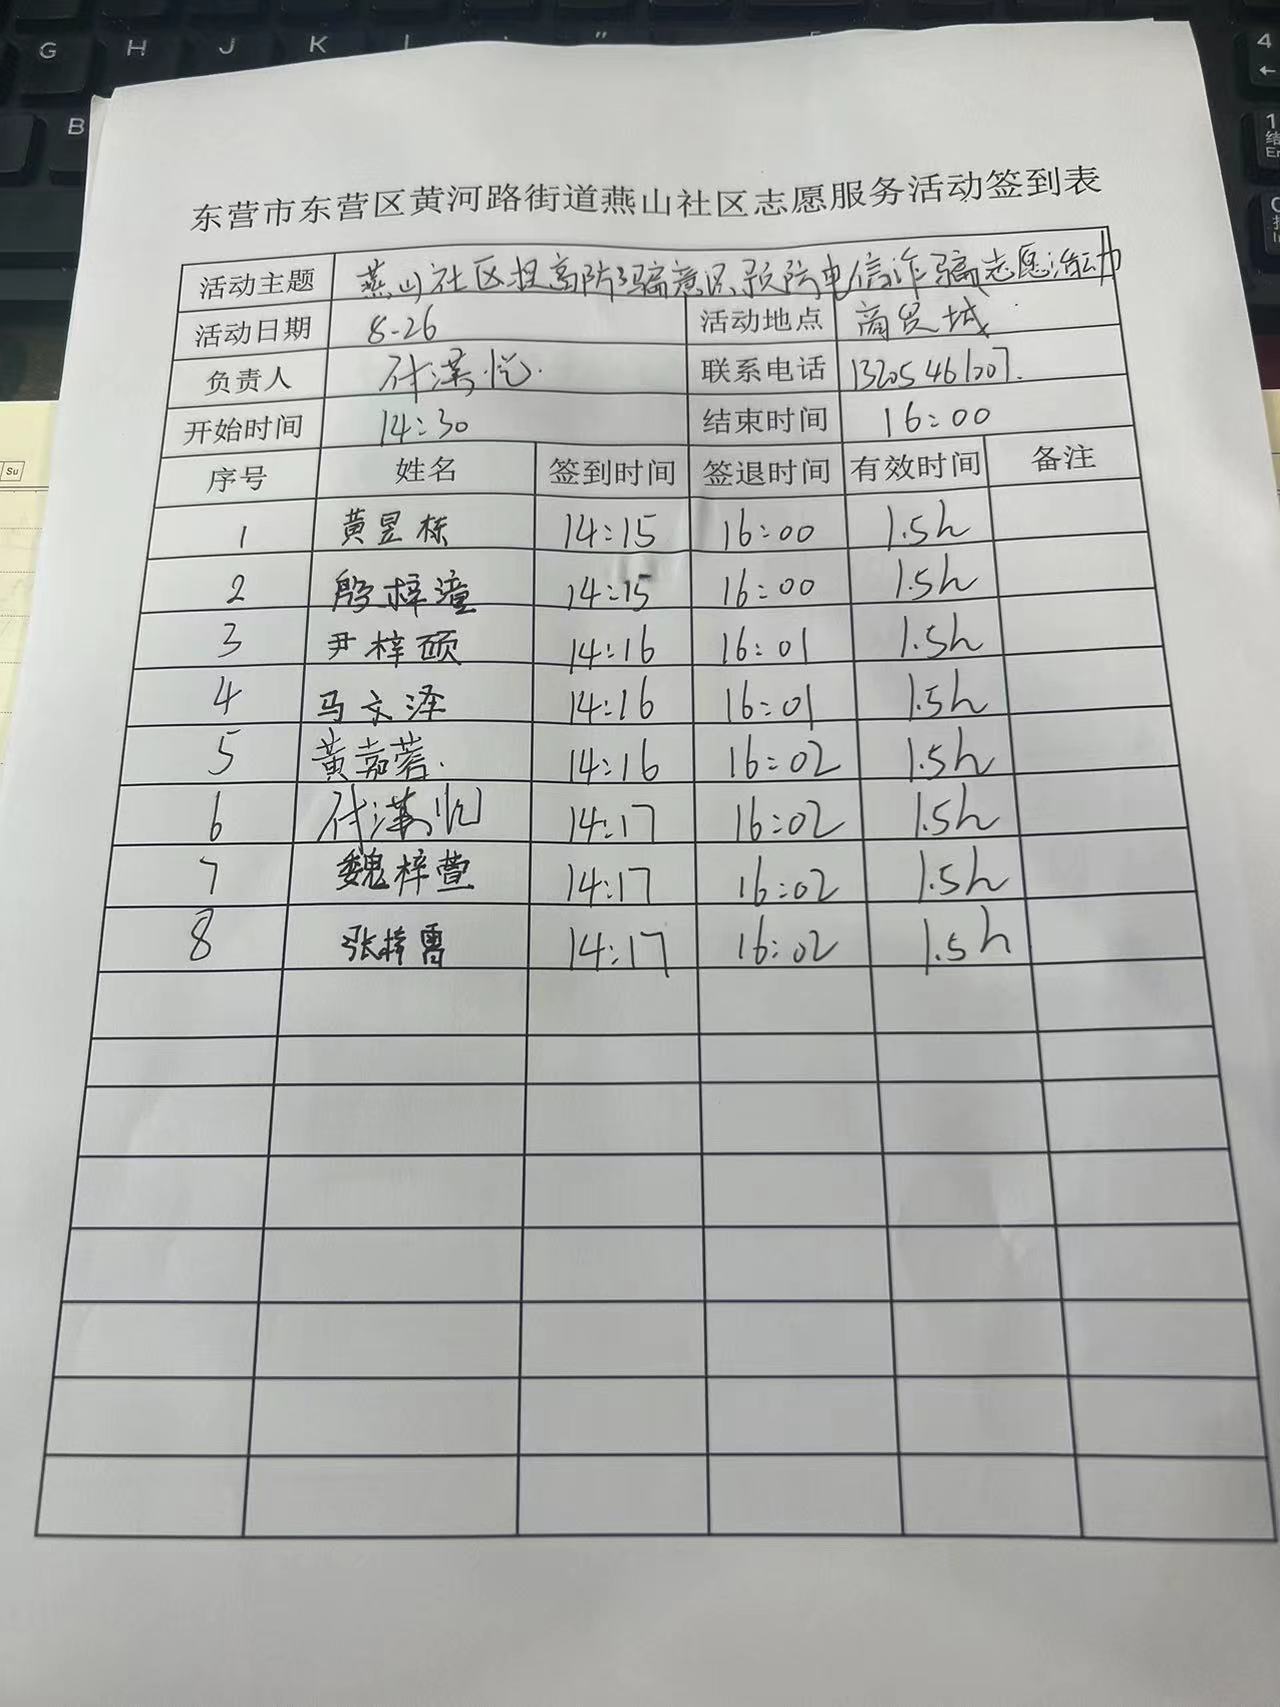 G H J K L
B
4
1
Su
东营市东营区黄河路街道燕山社区志愿服务活动签到表
活动主题 燕山社区提高防骗意识预防电信诈骗志愿活动
活动日期 8-26 活动地点 商贸城
负责人 付潇悦 联系电话 13205461207.
开始时间 14:30 结束时间 16:00
序号 姓名 签到时间 签退时间 有效时间 备注
1 黄昱栋 14:15 16:00 1.5h
2 殷梓潼 14:15 16:00 1.5h
3 尹梓硕 14:16 16:01 1.5h
4 马文泽 14:16 16:01 1.5h
5 黄嘉蓉. 14:16 16:02 1.5h
6 14:17 16:02 1.5h
7 魏梓萱 14:17 16:02 1.5h
8 张梓 14:17 16:02 1.5h